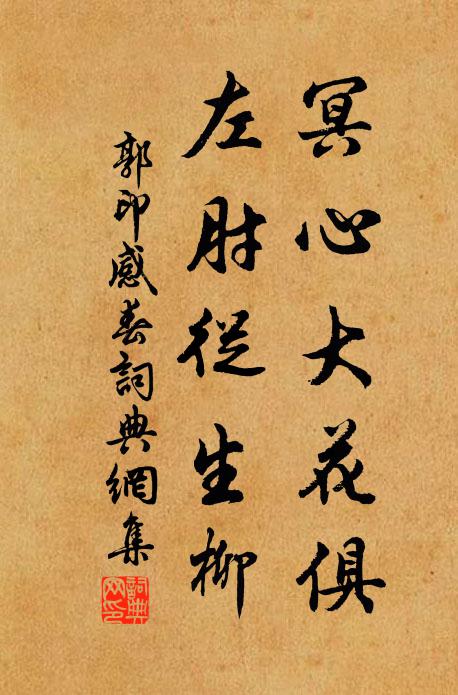 冥心大花俱
左肘從生柳
郭印感春詞典網集
詞典網印